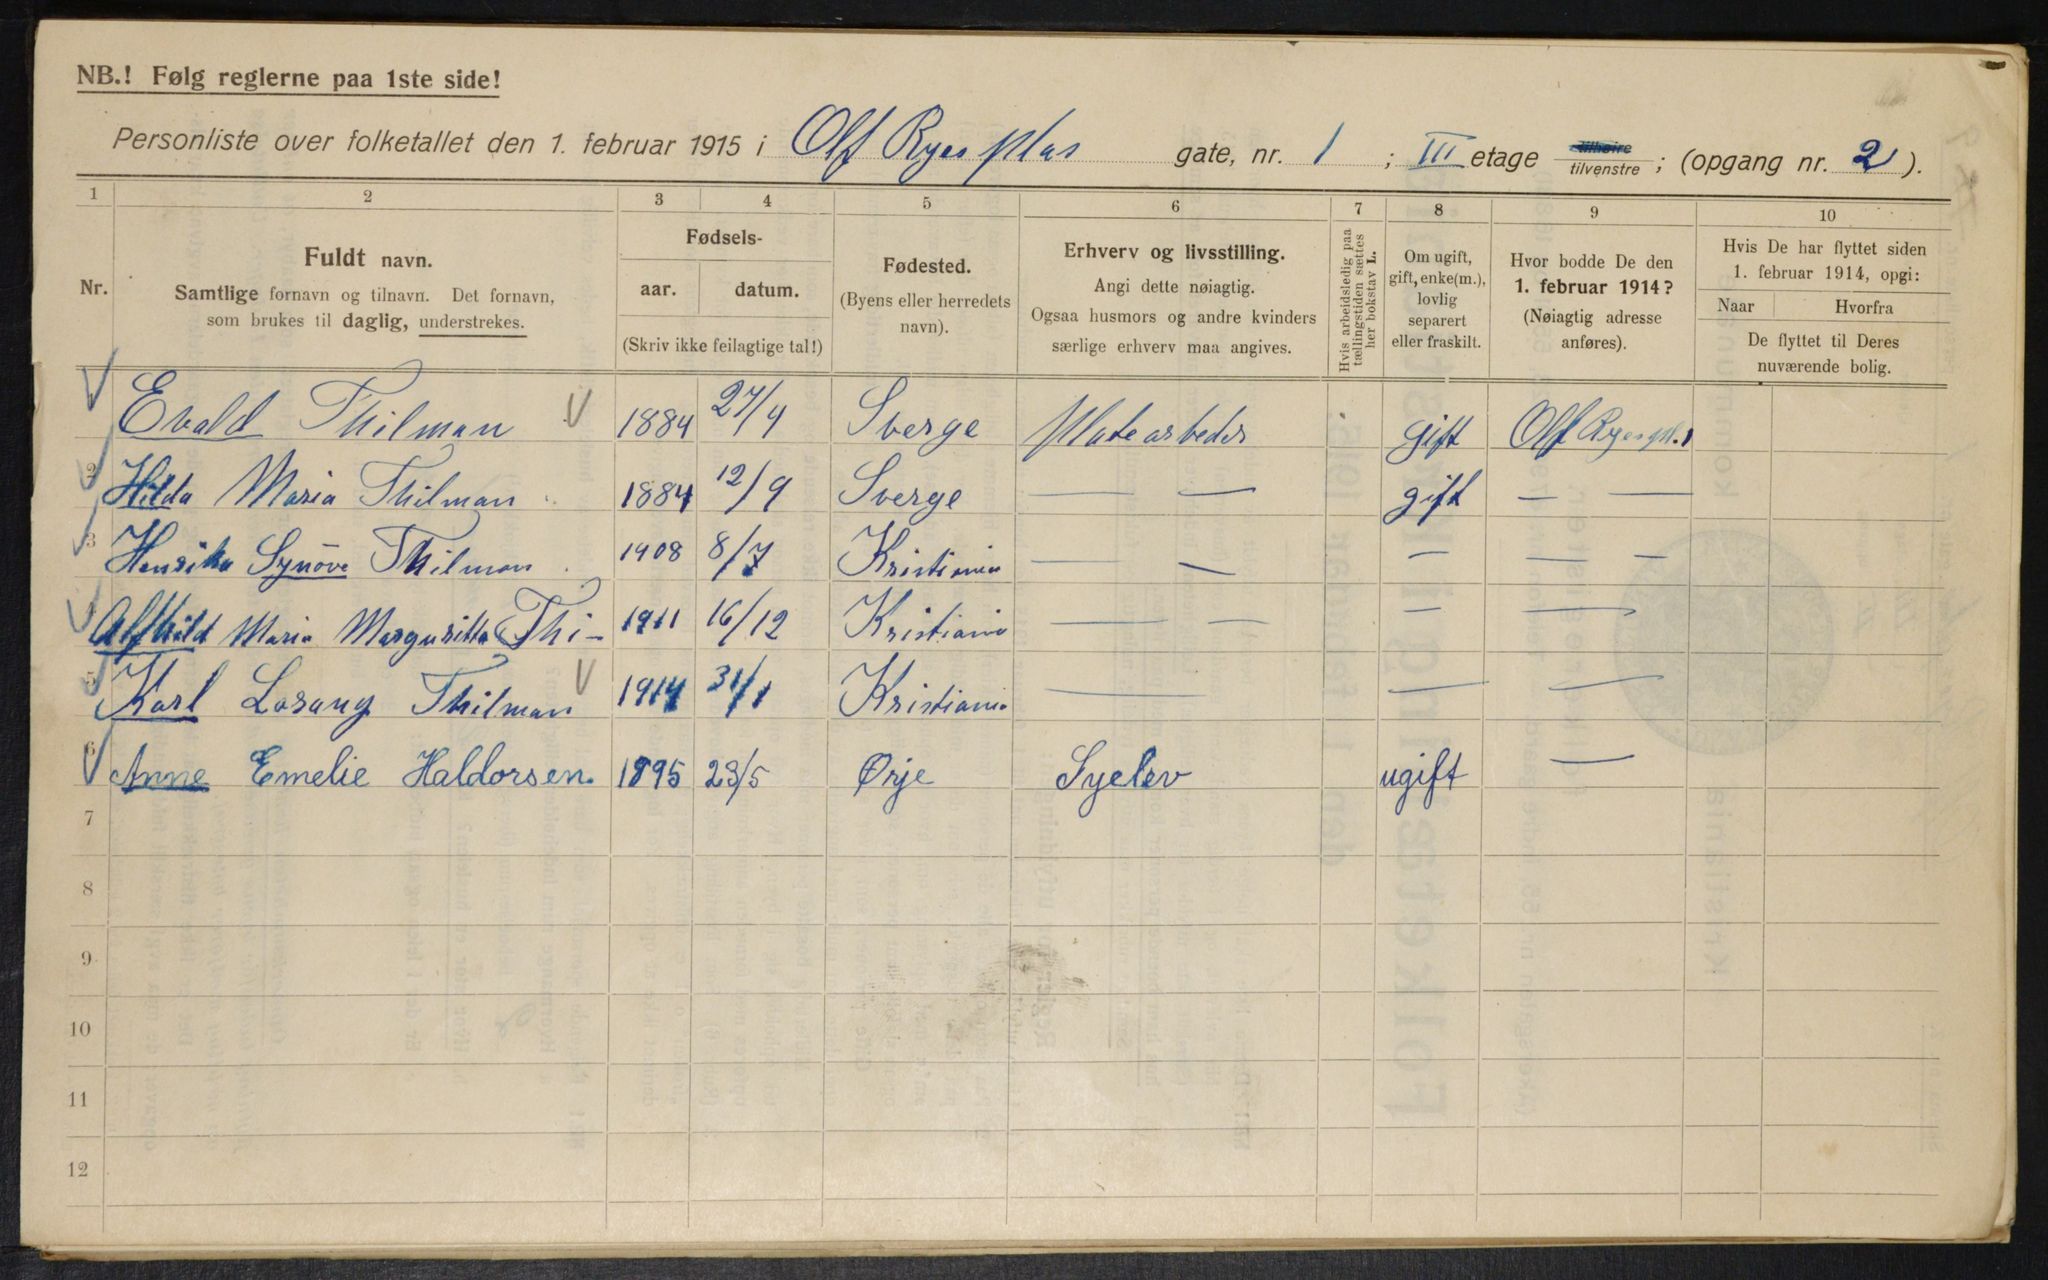 NB.! Følg reglerne paa 1ste side!
Personliste over folketallet den 1. februar 1915 i Olf Ryes plas gate, nr. 1 ; III etage tilhøire tilvenstre ; (opgang nr. 2 ).
1 2 3 4 5 6 7 8 9 10
Nr.
Fuldt navn.
Samtlige fornavn og tilnavn. Det fornavn,
som brukes til daglig, understrekes.
Fødsels-
aar. datum.
(Skriv ikke feilagtige tal!)
Fødested.
(Byens eller herredets
navn).
Erhverv og livsstilling.
Angi dette nøiagtig.
Ogsaa husmors og andre kvinders
særlige erhverv maa angives.
Hvis arbeidsledig paa
tællingstiden sættes
her bokstav L.
Om ugift,
gift, enke(m.),
lovlig
separert
eller fraskilt.
Hvor bodde De den
1. februar 1914?
(Nøiagtig adresse
anføres).
Hvis De har flyttet siden
1. februar 1914, opgi:
Naar Hvorfra
De flyttet til Deres
nuværende bolig.
Evald Thilman 1884 27/9 Sverge Platearbeder gift Olf Ryespl. 1
2 Hilda Maria Thilman 1884 12/9 Sverge — — gift — —
3 Henrika Synöve Thilman 1908 8/7 Kristiania — — — — —
4 Alfhild Maria Margaritta Thi- 1911 16/12 Kristiania — — — —
5 Karl Thilman 1914 31/1 Kristiania — — —
6 Anne Emelie Haldorsen. 1895 23/5 Ørje Syelev ugift —
7
8
9
10
11
12